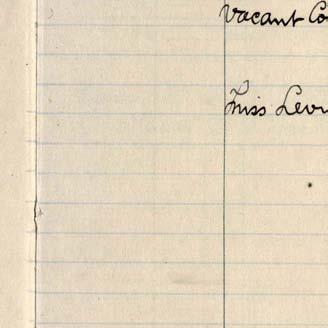 Vacant Co
Miss Lev